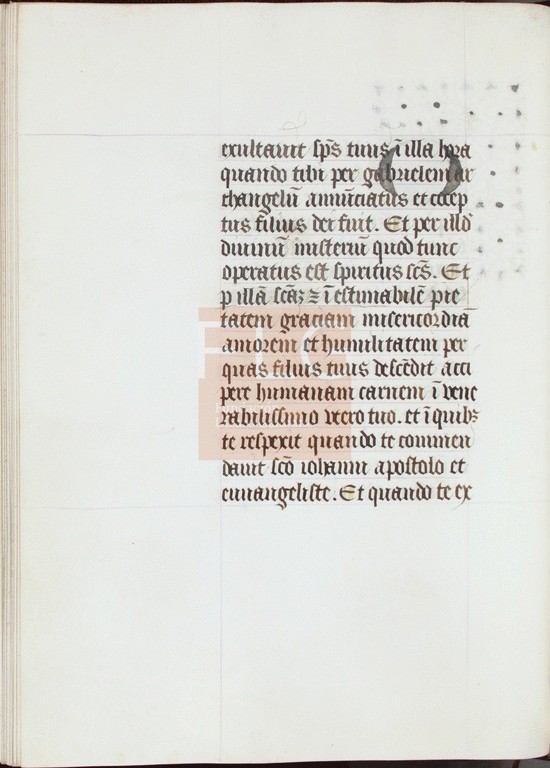 exultauit sp̄s tuus ī illa hora
quando tibi per gabrielem ar
changelū annūciatus et ↄcep
tus filius dei fuit. Et per illd̄
diuinū misteriū quod tunc
operatus est spiritus sc̄s. Et
p illā sc̄az ⁊ īestimabilē pie
tatem graciam misericordiā
amorem et humilitatem per
quas filius tuus descēdit acci
pere humanam carnem ī vene
rabilissimo vtero tuo. et ī quibꝫ
te respexit quando te commen
dauit sc̄o iohanni apostolo et
euuangeliste. Et quando te ex